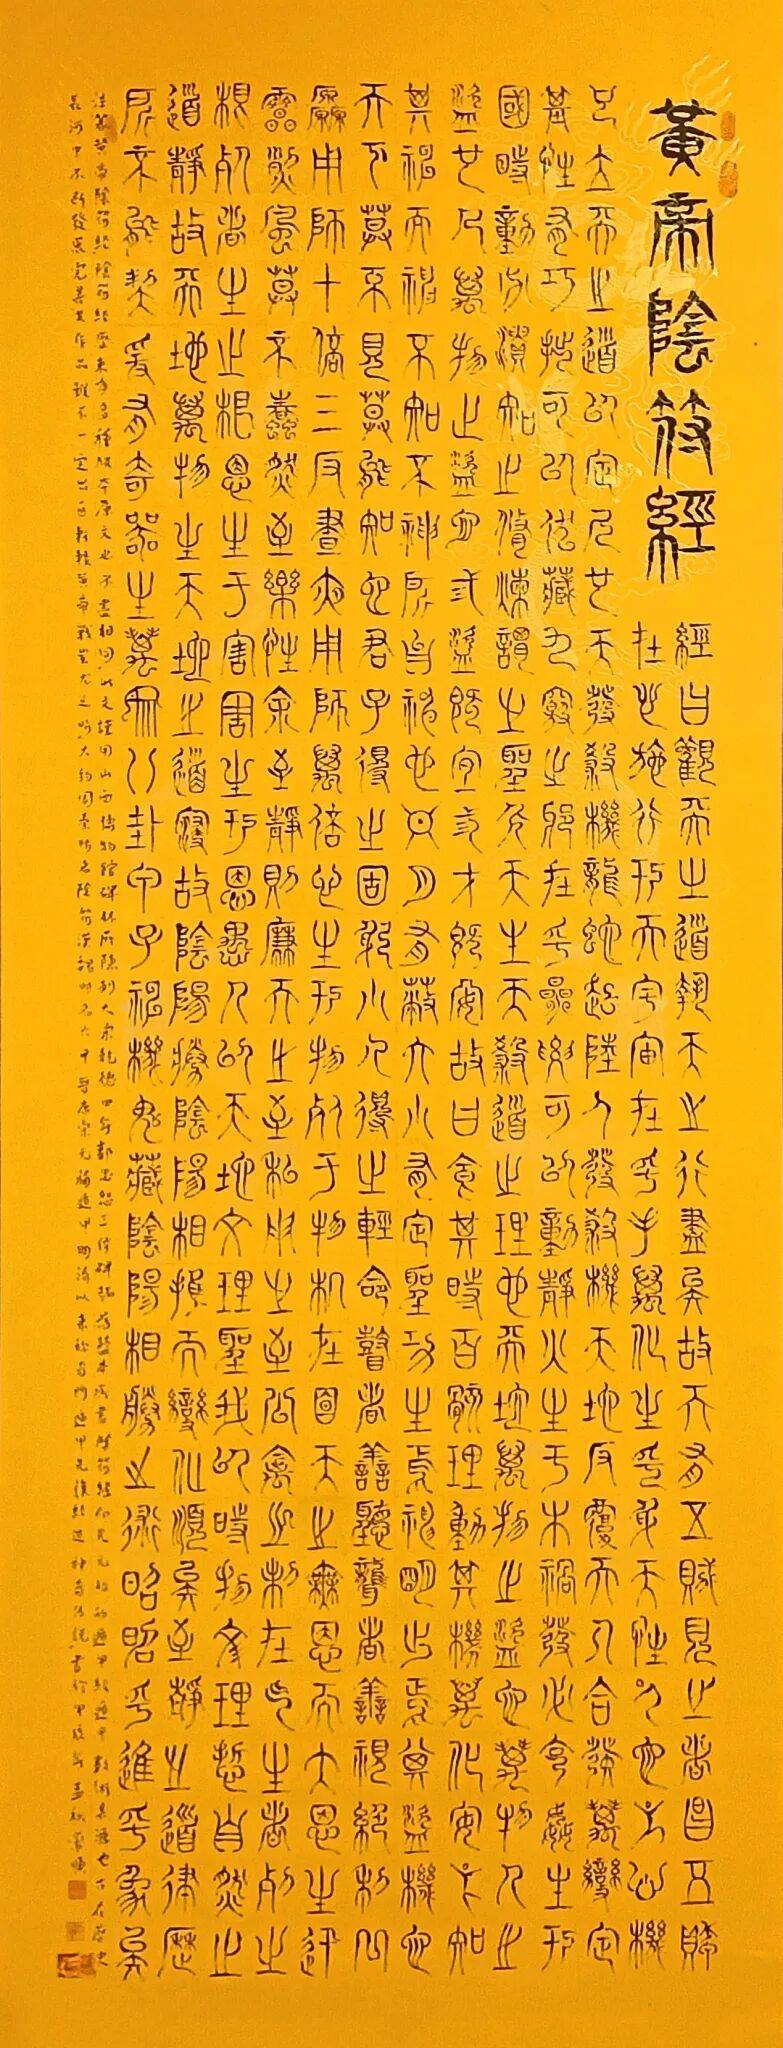 黃帝陰符經
經曰觀天之道執天之行盡矣故天有五賊見之者昌五賊
在心施行于天宇宙在乎手萬化生乎身天性人也人心機
也立天之道以定人也天發殺機龍蛇起陸人發殺機天地反覆天人合發萬變定
基性有巧拙可以伏藏九竅之邪在乎三要可以動靜火生于木禍發必克姦生于
國時動必潰知之修煉謂之聖人天生天殺道之理也天地萬物之盜也萬物人之
盜也人萬物之盜也三盜既宜三才既安故曰食其時百骸理動其機萬化安人知
其神而神不知不神所以神也日月有數大小有定聖功生焉神明出焉其盜機也
天下莫不見莫能知也君子得之固窮小人得之輕命瞽者善聽聾者善視絕利一
源用師十倍三反晝夜用師萬倍心生于物死于物機在目天之無恩而大恩生迅
雷烈風莫不蠢然至樂性余至靜則廉天之至私用之至公禽之制在氣生者死之
根死者生之根恩生于害害生于恩愚人以天地文理聖我以時物文理哲自然之
道靜故天地萬物生天地之道浸故陰陽勝陰陽相推而變化順矣至靜之道律曆
所不能契爰有奇器生萬象八卦甲子神機鬼藏陰陽相勝之術昭昭乎進乎象矣
黃帝陰符經陰符經歷來有多種版本原文也不盡相同此文謹用山西博物館碑林所陳列大宋乾德四年郭忠恕三體碑拓為藍本